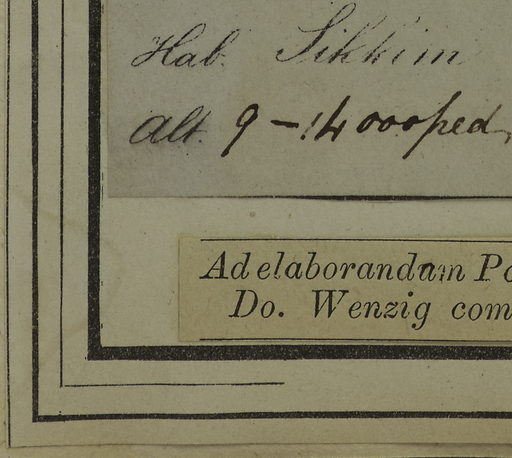 Hab. Sikkim
Alt. 9-14000 ped.
Ad elaborandum Po
Do. Wenzig com